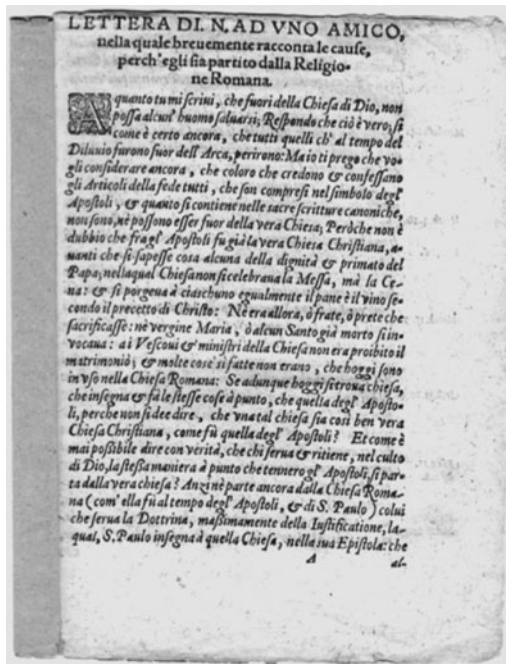 LETTERA DI. N. AD VNO AMICO,
nella quale breuemente racconta le cause,
perch'egli sia partito dalla Religio-
ne Romana.
A quanto tu mi scriui, che fuori della Chiesa di Dio, non
possa alcun' huomo saluarsi; Respondo che ciò è vero; si
come è certo ancora, che tutti quelli ch' al tempo del
Diluuio furono fuor dell' Arca, perirono: Ma io ti prego che vo-
gli considerare ancora, che coloro che credono & confessano
gli Articoli della fede tutti, che son compresi nel simbolo degl'
Apostoli, & quanto si contiene nelle sacre scritture canoniche,
non sono, nè possono esser fuor della vera Chiesa; Perche non è
dubbio che fra gl' Apostoli fu già la vera Chiesa Christiana, a-
uanti che si sapesse cosa alcuna della dignità & primato del
Papa; nella qual Chiesa non si celebraua la Messa, mà la Ce-
na: & si porgeua à ciaschuno egualmente il pane è il vino se-
condo il precetto di Christo: Nè era allora, ò frate, ò prete che
sacrificasse: nè vergine Maria, ò alcun Santo già morto si in-
uocaua: a i Vescoui & ministri della Chiesa non era proibito il
matrimoniò; & molte cose si fatte non erano, che hoggi sono
in vso nella Chiesa Romana: Se adunque hoggi si troua chiesa,
che insegna & fa le stesse cose à punto, che quella degl' Aposto-
li, perche non si dee dire, che vna tal chiesa sia così ben vera
Chiesa Christiana, come fù quella degl' Apostoli? Et come è
mai possibile dire con verità, che chi serua & ritiene, nel culto
di Dio, la stessa maniera à punto che tennero gl' Apostoli, si par-
ta dalla vera chiesa? Anzi nè parte ancora dalla Chiesa Roma-
na (com' ella fù al tempo degl' Apostoli, & di S. Paulo) colui
che serua la Dottrina, massimamente della Iustificatione, la-
qual, S. Paulo insegna à quella Chiesa, nella sua Epistola: che
A al-